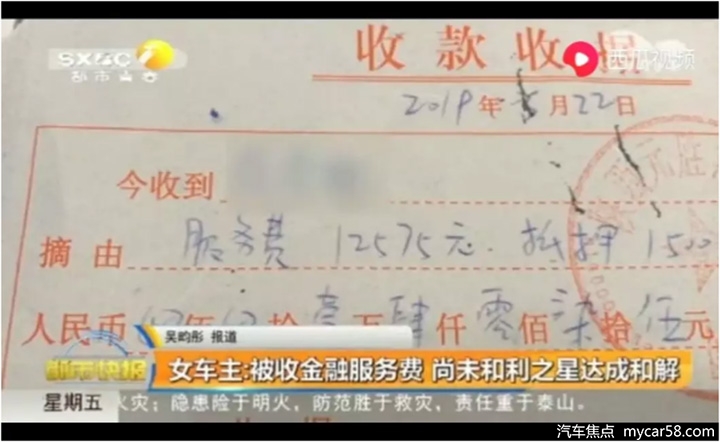 SXBC 7
都市青春
西瓜视频
收款收据
2019年5月22日
今收到
摘由 服务费 12575元. 抵押 1500
人民币 佰 拾 壹万肆仟零佰柒拾伍元
吴昀彤 报道
都市快报
女车主:被收金融服务费 尚未和利之星达成和解
星期五 火灾;隐患险于明火,防范胜于救灾,责任重于泰山。
汽车焦点 mycar58.com